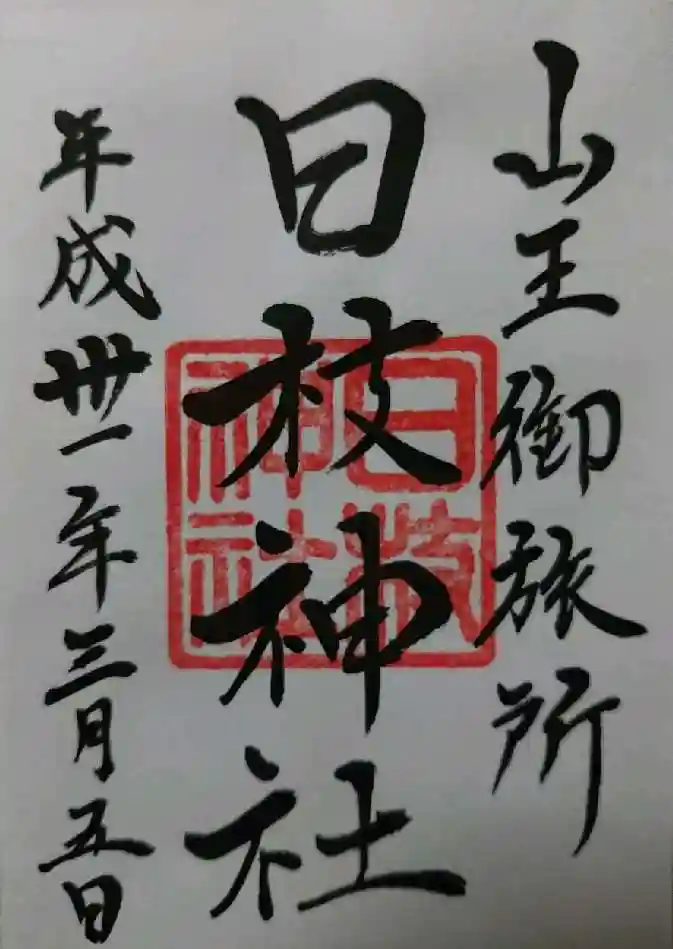 山王御旅所
日枝神社
平成卅一年三月五日
日枝
神社